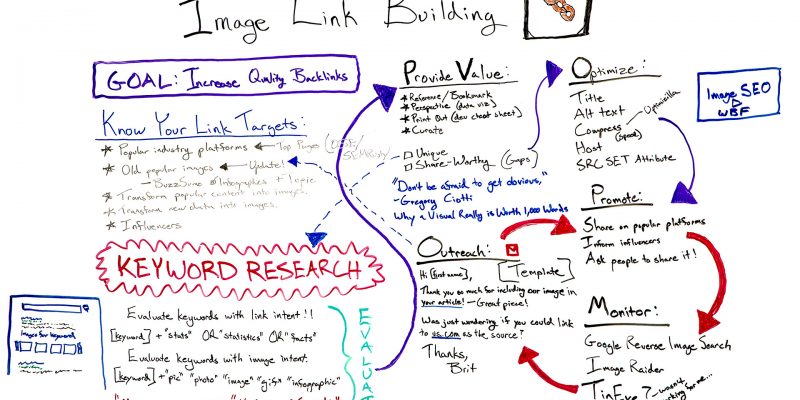 Image Link Building
GOAL: Increase Quality Backlinks
Know Your Link Targets:
Popular industry platforms
Top Pages
Old popular images
Update!
- BuzzSumo + Infographics + topic
Transform popular content into images.
Transform new data into images.
Influencers
KEYWORD RESEARCH
Images for keyword
Evaluate keywords with link intent!!
[keyword] + "stats" OR "statistics" OR "facts"
Evaluate keywords with image intent.
[keyword] + "pic" "photo" "image" "gifs" "infographic"
EVALUAT
Provide Value:
Reference/Bookmark
Perspective (data viz)
Print Out (dev cheat sheet)
Curate
Unique
Share-Worthy (Gaps)
"Don't be afraid to get obvious,"
- Gregory Ciotti
Why a Visual Really is Worth 1,000 Words
Outreach:
[Template]
Hi [first name],
Thank you so much for including our image in
your article! - Great piece!
Was just wondering if you could link
to us.com as the source?
Thanks,
Brit
Optimize:
Title
Alt text
Compress - Optimizilla
(speed)
Host
SRC SET Attribute
Image SEO
WBF
Promote:
Share on popular platforms
Inform influencers
Ask people to share it!
Monitor:
Google Reverse Image Search
Image Raider
TinEye? - wasn't
working for me...